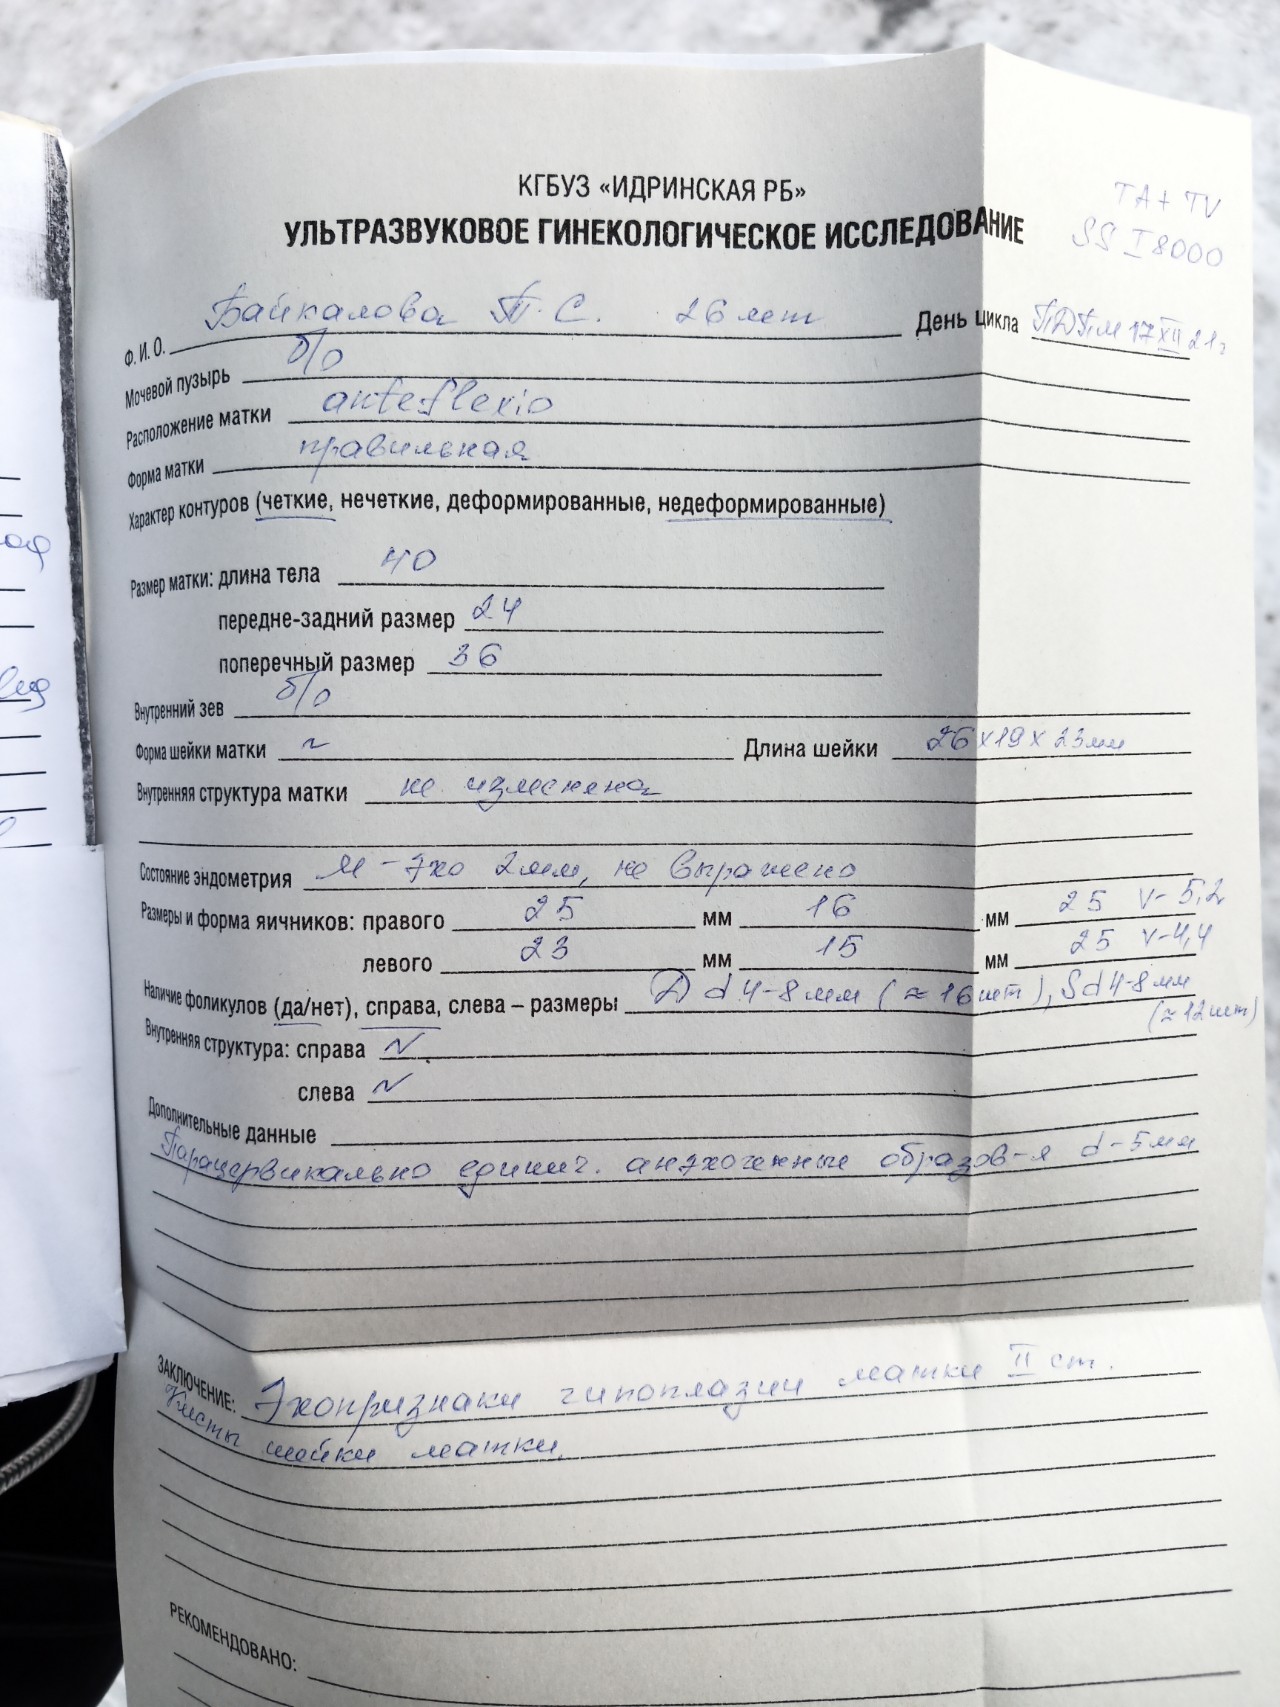 КГБУЗ «ИДРИНСКАЯ РБ»
TA + TV
УЛЬТРАЗВУКОВОЕ ГИНЕКОЛОГИЧЕСКОЕ ИССЛЕДОВАНИЕ
SS I 8000
Ф. И. О. Байкалова Т. С. 26 лет День цикла ПДПМ 17 XII 21г
Мочевой пузырь б/о
Расположение матки anteflexio
Форма матки правильная
Характер контуров (четкие, нечеткие, деформированные, недеформированные)
Размер матки: длина тела 40
передне-задний размер 24
поперечный размер 36
Внутренний зев б/о
Форма шейки матки N Длина шейки 26 x 19 x 23 мм
Внутренняя структура матки не изменена
Состояние эндометрия М-эхо 2 мм, не выражено
Размеры и форма яичников: правого 25 мм 16 мм 25 V-5,2
левого 23 мм 15 мм 25 V-4,4
Наличие фоликулов (да/нет), справа, слева – размеры D d 4-8 мм (≈ 16 шт), S d 4-8 мм
(≈ 12 шт)
Внутренняя структура: справа N
слева N
Дополнительные данные
Парацервикально единич. анэхогенные образов-я d-5мм
ЗАКЛЮЧЕНИЕ: Эхопризнаки гипоплазии матки II ст.
Кисты шейки матки.
РЕКОМЕНДОВАНО: